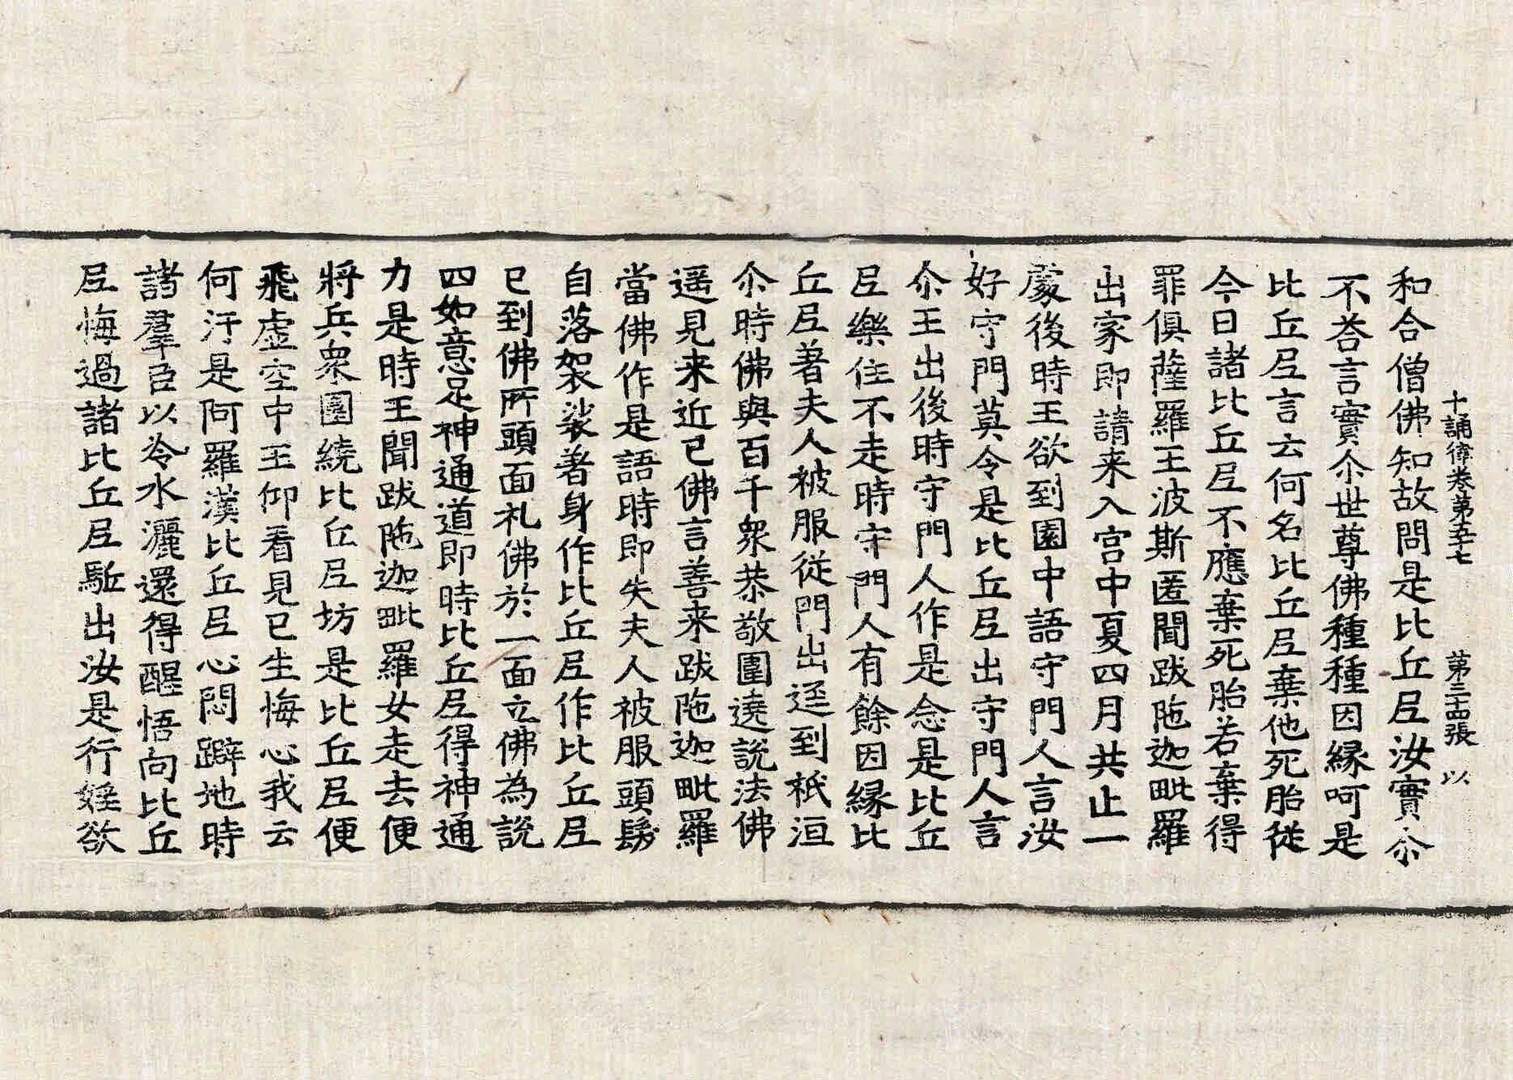 十誦律卷第五七 第三十四張 以
和合僧佛知故問是比丘𡰱汝實尒
不荅言實尒世尊佛種種因縁呵是
比丘𡰱言云何名比丘𡰱棄他死胎従
今日諸比丘𡰱不應棄死胎若棄得
罪俱薩羅王波斯匿聞跋陁迦毗羅
出家即請来入宫中夏四月共止一
處後時王欲到園中語守門人言汝
好守門莫令是比丘𡰱出守門人言
尒王出後時守門人作是念是比丘
𡰱樂住不走時守門人有餘因縁比
丘𡰱著夫人被服従門出逕到祇洹
尒時佛與百千衆恭敬圍遶說法佛
遥見来近已佛言善来跋陁迦毗羅
當佛作是語時即失夫人被服頭髮
自落袈裟著身作比丘𡰱作比丘𡰱
已到佛所頭面礼佛於一面立佛為說
四如意足神通道即時比丘𡰱得神通
力是時王聞跋陁迦毗羅女走去便
將兵衆圍繞比丘𡰱坊是比丘𡰱便
飛虛空中王仰看見已生悔心我云
何汙是阿羅漢比丘𡰱心悶躃地時
諸羣臣以冷水灑還得醒悟向比丘
𡰱悔過諸比丘𡰱駈出汝是行婬欲